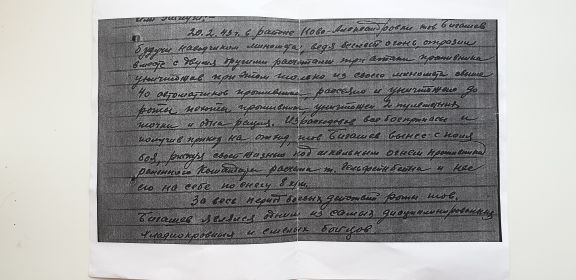 20.2.43 г. в районе Ново-Александровки тов Бигашев
будучи наводчиком миномета, ведя беглый огонь отразил
вместе с двумя другими расчетами три атаки противника
уничтожив при этом только из своего миномета свыше
40 автоматчиков противника, рассеяно и уничтожено до
роты пехоты противника уничтожен 2 пулеметных
точки и одна рация. Израсходовав все боеприпасы и
получив приказ на отход, тов Бигашев вынес с поля
боя, рискуя своей жизнью под шквальным огнем противника
раненного Командира расчета т. и нес
его на себе по снегу 8 км.
За весь период боевых действий роты тов.
Бигашев являлся одним из самых дисциплинированных
хладнокровных и смелых бойцов